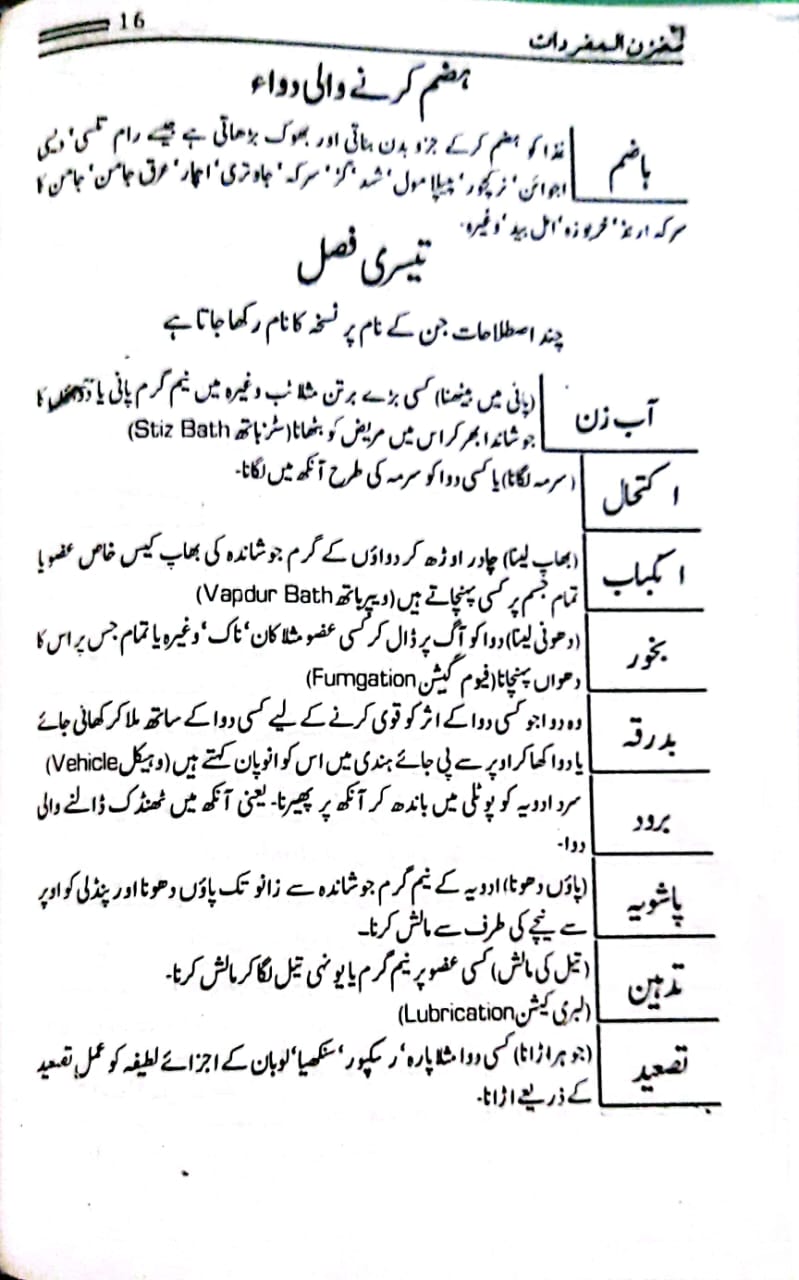 16
مخزن المفردات
ہضم کرنے والی دواء
ہاضم
غذا کو ہضم کرکے جزو بدن بناتی اور بھوک بڑھاتی ہے جیسے رام تلسی' دیسی
اجوائن' نرکچور' پیپلا مول' شہد' گڑ' سرکہ' جاوتری' اچار' عرق جامن' جامن کا
سرکہ' خربوزہ' امل بید' وغیرہ۔
تیسری فصل
چند اصطلاحات جن کے نام پر نسخہ کا نام رکھا جاتا ہے
آب زن
(پانی میں بیٹھنا) کسی بڑے برتن مثلا ٹب وغیرہ میں نیم گرم پانی یا دواؤں کا
جوشاندا بھر کر اس میں مریض کو بٹھانا (سٹز باتھ Stiz Bath)
اکتحال
(سرمہ لگانا) یا کسی دوا کو سرمہ کی طرح آنکھ میں لگانا۔
انکباب
(بھاپ لینا) چادر اوڑھ کر دواؤں کے گرم جوشاندہ کی بھاپ کیس خاص عضو یا
تمام جسم پر کسی پہنچاتے ہیں (ویپر باتھ Vapdur Bath)
بخور
(دھونی لینا) دوا کو آگ پر ڈال کر کسی عضو مثلا کان' ناک' وغیرہ یا تمام جس پر اس کا
دھواں پہنچانا (فیوم گیشن Fumgation)
بدرقہ
وہ دوا جو کسی دوا کے اثر کو قوی کرنے کے لیے کسی دوا کے ساتھ ملا کر کھائی جائے
یا دوا کھا کر اوپر سے پی جائے ہندی میں اس کو انوپان کہتے ہیں (وہیکل Vehicle)
برود
سرد ادویہ کو پوٹلی میں باندھ کر آنکھ پر پھیرنا۔ یعنی آنکھ میں ٹھنڈک ڈالنے والی
دوا۔
پاشویہ
(پاؤں دھونا) ادویہ کے نیم گرم جوشاندہ سے زانو تک پاؤں دھونا اور پنڈلی کو اوپر
سے نیچے کی طرف سے مالش کرنا۔
تدہین
(تیل کی مالش) کسی عضو پر نیم گرم یا یونہی تیل لگا کر مالش کرنا۔
(لبری کیشن Lubrication)
تصعید
(جوہر اڑانا) کسی دوا مثلا پارہ' رسکپور' سنکھیا' لوبان کے اجزائے لطیفہ کو عمل تصعید
کے ذریعے اڑانا۔